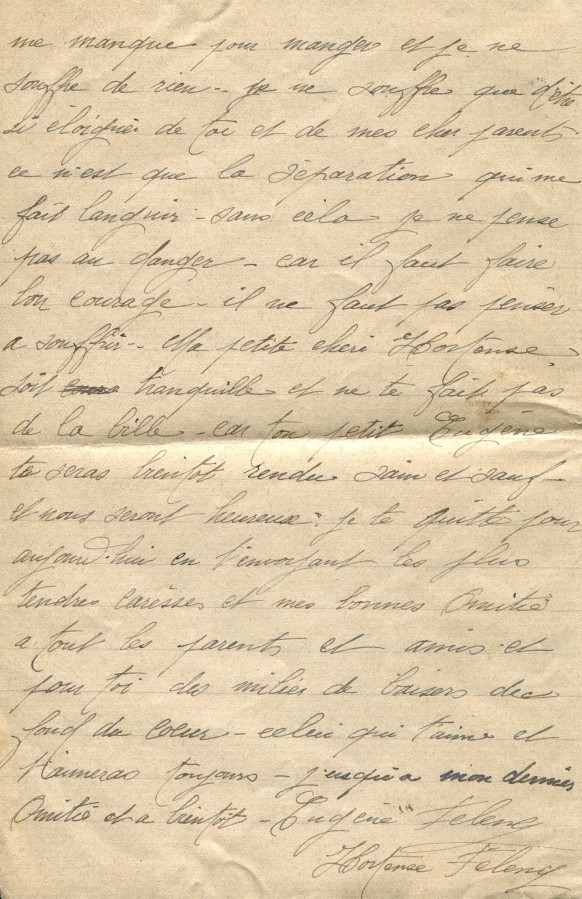 me manque pour manger et je ne
souffre de rien.. je ne souffre que d'être
si éloignier de toi et de mes cher parents.
ce n'est que la séparation qui me
fait languir - sans cela je ne pense
pas au danger - car il faut faire
bon courage - il ne faut pas penser
a souffrir.. Ma petite cheri Hortense
soit tranquille et ne te fait pas
de la bille - car ton petit Eugène
te seras bientot rendu sain et sauf -
et nous seront heureux. je te quitte pour
aujourd'hui en t'envoyant les plus
tendres carèsses et mes bonnes Amitié
a tout les parents et amis et
pour toi des milier de baisers du
fond du coeur - celui qui t'aime et
t'aimeras toujours - jusqu'a mon dernier
Amitié et a bientôt - Eugène Feleng
Hortense Feleng